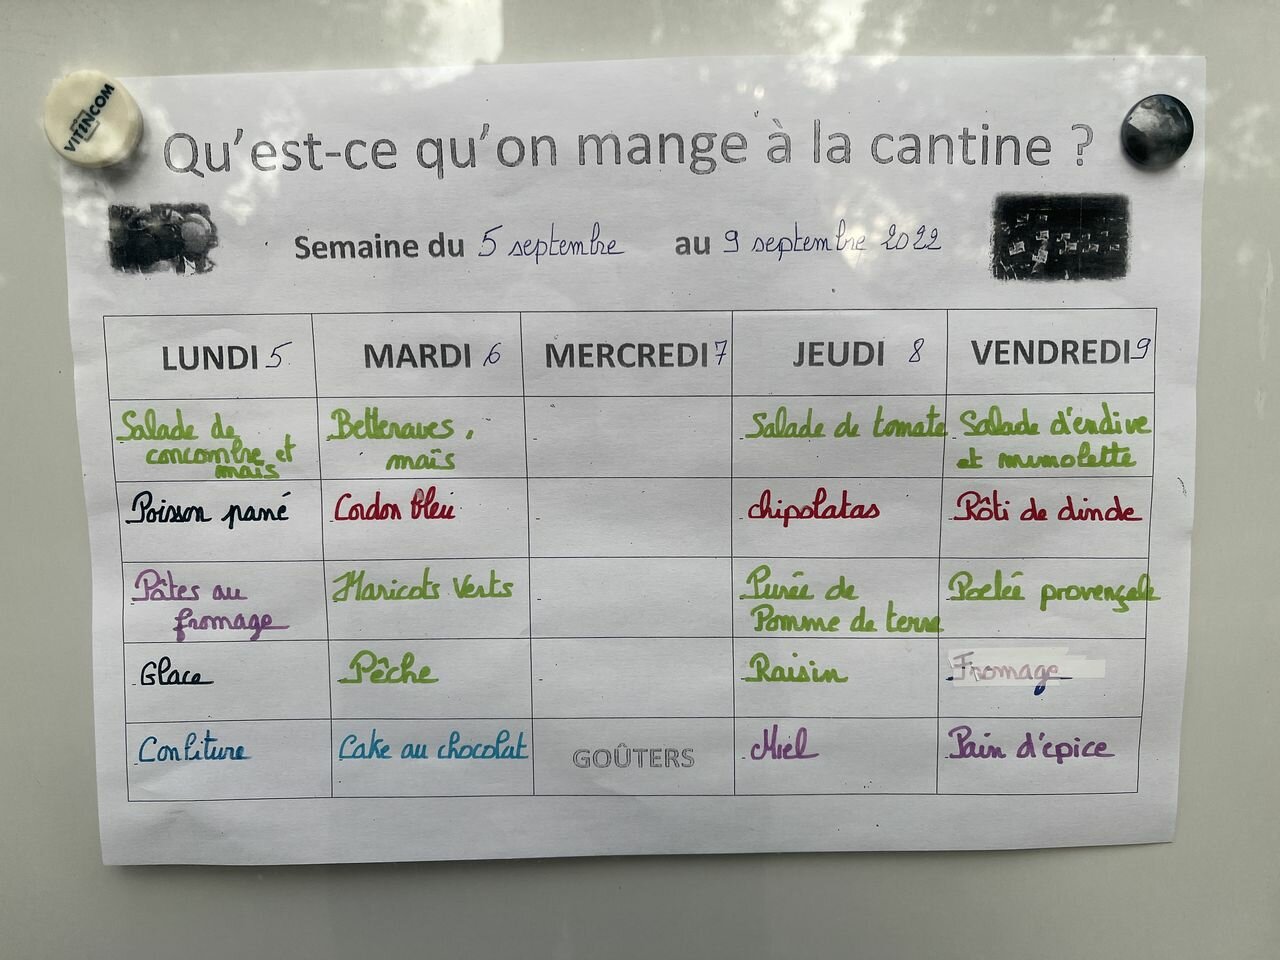 VITINCOM
Qu'est-ce qu'on mange à la cantine ?
Semaine du 5 septembre au 9 septembre 2022
LUNDI 5 MARDI 6 MERCREDI 7 JEUDI 8 VENDREDI 9
Salade de
concombre et
maïs
Betteraves,
maïs
Salade de tomate
Salade d'endive
et mimolette
Poisson pané
Cordon bleu
-
chipolatas
Rôti de dinde
Pâtes au
fromage
Haricots verts
-
Purée de
Pomme de terre
Poelée provençale
Glace
Pêche
-
Raisin
Fromage
Confiture
Cake au chocolat
GOÛTERS
Miel
Pain d'épice